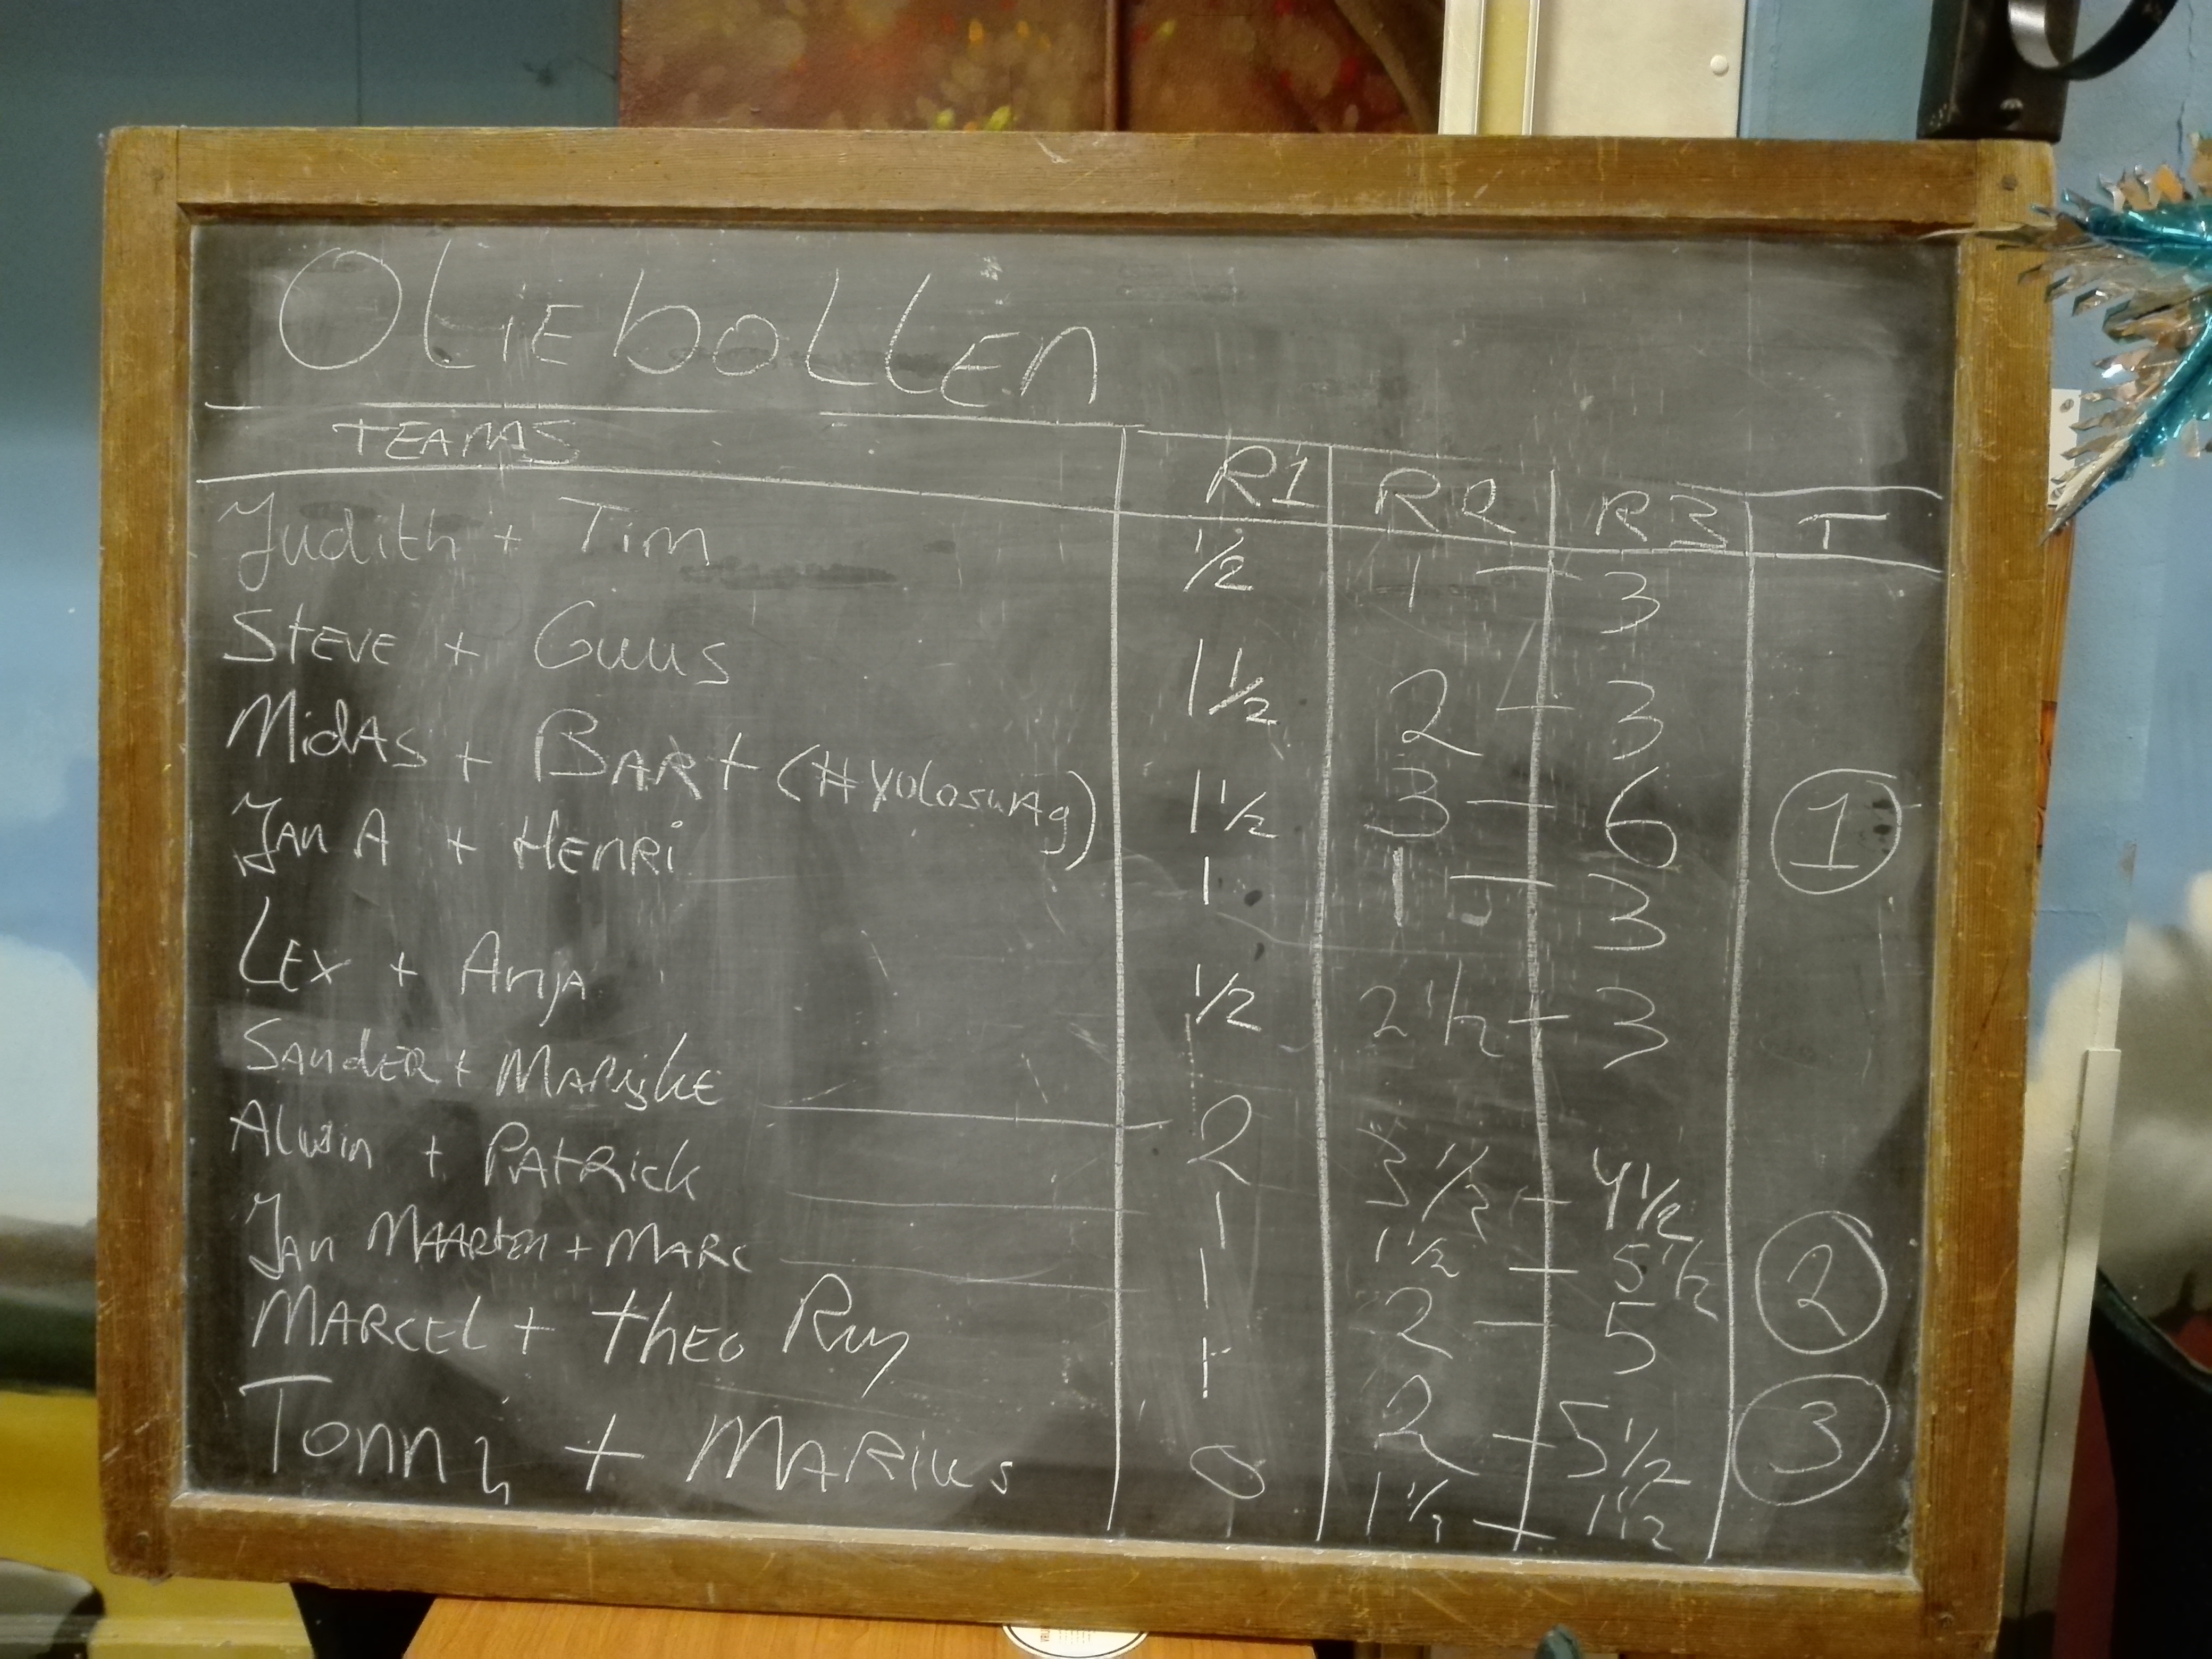 OLiEboLLEn
TEAMS R1 R2 R3 T
Judith + Tim 1/2 1 - 3
STEVE + Guus 1 1/2 2 - 3
MidAS + BARt (#YOLOSWAg) 1 1/2 3 - 6 1
JAN A + HENRi 1 1 - 3
LEX + Anja 1/2 2 1/2 - 3
SANdER + MARijkE 2 3 1/2 - 4 1/2
ALwin + PAtRick 1 1 1/2 - 5 1/2 2
JAn MAARten + MARc 1 2 - 5
MARCEL + thEo Ruy 1 2 - 5 1/2 3
Tonny + MARius 0 1 1/2 - 1 1/2